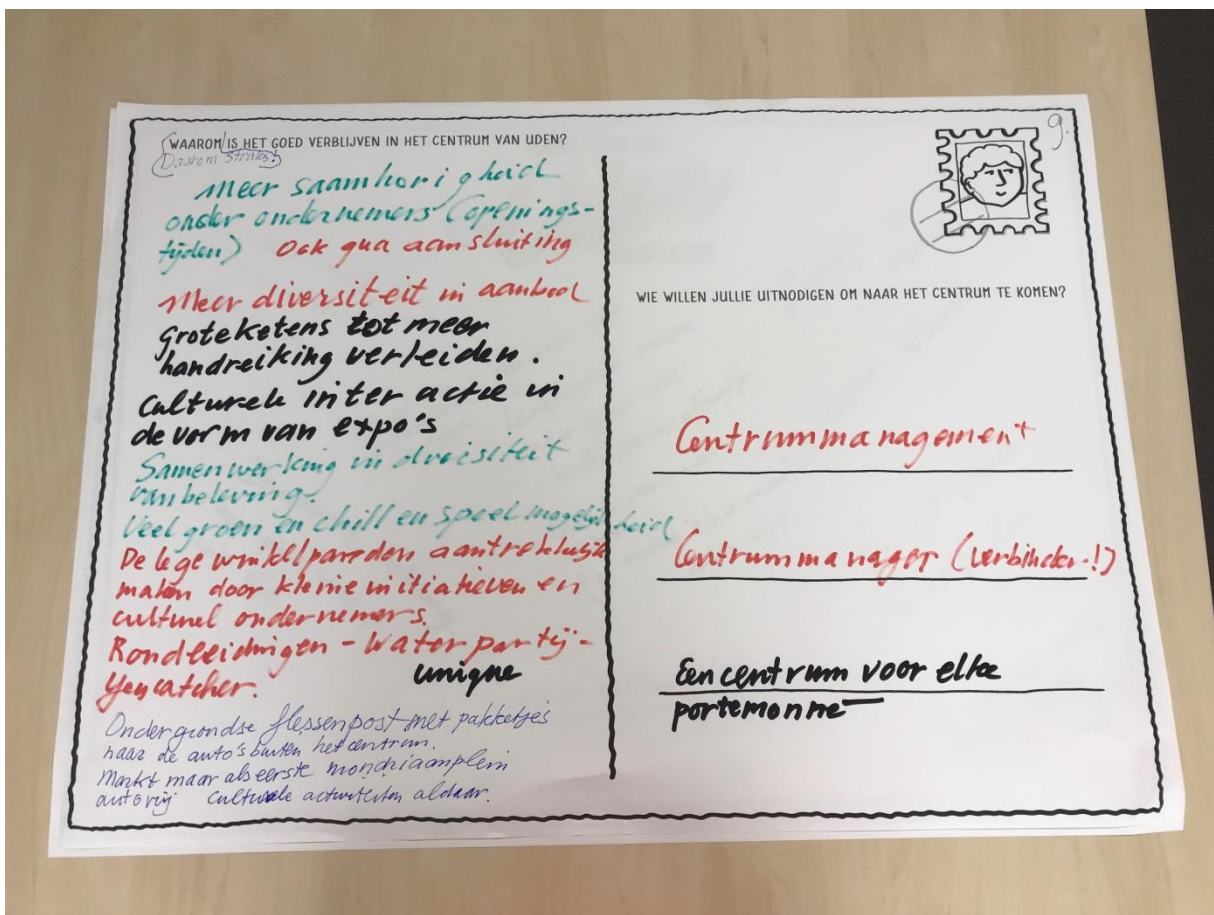 WAAROM IS HET GOED VERBLIJVEN IN HET CENTRUM VAN UDEN?
Daarom Straks!
Meer saamhorigheid
onder ondernemers (openings-
tijden) Ook qua aansluiting
Meer diversiteit in aanbod
Grote ketens tot meer
handreiking verleiden.
Culturele inter actie in
de vorm van expo's
Samenwerking in diversiteit
van beleving.
Veel groen en chill en speel mogelijkheid
De lege winkelpanden aantrekkelijk
maken door kleine initiatieven en
cultureel ondernemers.
Rondleidingen - Waterpartij -
Yencatcher. unique
Ondergrondse flessenpost met pakketjes
naar de auto's buiten het centrum.
Markt maar als eerste mondriaanplein
autovrij Culturele activiteiten aldaar.
9.
WIE WILLEN JULLIE UITNODIGEN OM NAAR HET CENTRUM TE KOMEN?
Centrummanagement
Centrummanager (verbinder!)
Een centrum voor elke
portemonne